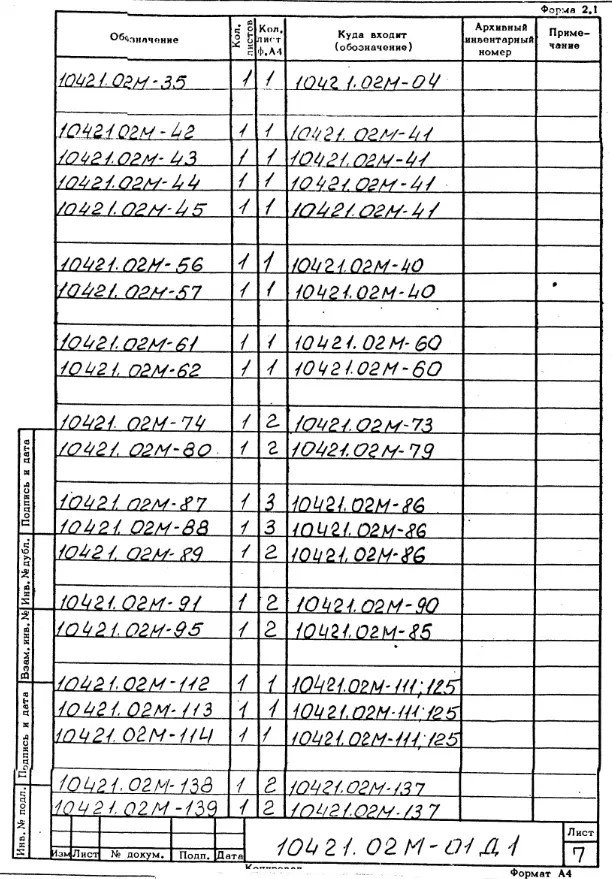 Форма 2.1
Обозначение Кол. листов Кол. лист ф.А4 Куда входит (обозначение) Архивный инвентарный номер Приме- чание
10421.02М-35 1 1 10421.02М-04
10421.02М-42 1 1 10421.02М-41
10421.02М-43 1 1 10421.02М-41
10421.02М-44 1 1 10421.02М-41
10421.02М-45 1 1 10421.02М-41
10421.02М-56 1 1 10421.02М-40
10421.02М-57 1 1 10421.02М-40
10421.02М-61 1 1 10421.02М-60
10421.02М-62 1 1 10421.02М-60
10421.02М-74 1 2 10421.02М-73
10421.02М-80 1 2 10421.02М-79
10421.02М-87 1 3 10421.02М-86
10421.02М-88 1 3 10421.02М-86
10421.02М-89 1 2 10421.02М-86
10421.02М-91 1 2 10421.02М-90
10421.02М-95 1 2 10421.02М-85
10421.02М-112 1 1 10421.02М-111;125
10421.02М-113 1 1 10421.02М-111;125
10421.02М-114 1 1 10421.02М-111;125
10421.02М-138 1 2 10421.02М-137
10421.02М-139 1 2 10421.02М-137
Инв.№ подл. Подпись и дата Взам. инв. № Инв.№ дубл. Подпись и дата
Изм Лист № докум. Подп. Дата
10421.02М-01Д1
Лист
7
Копировал
Формат А4